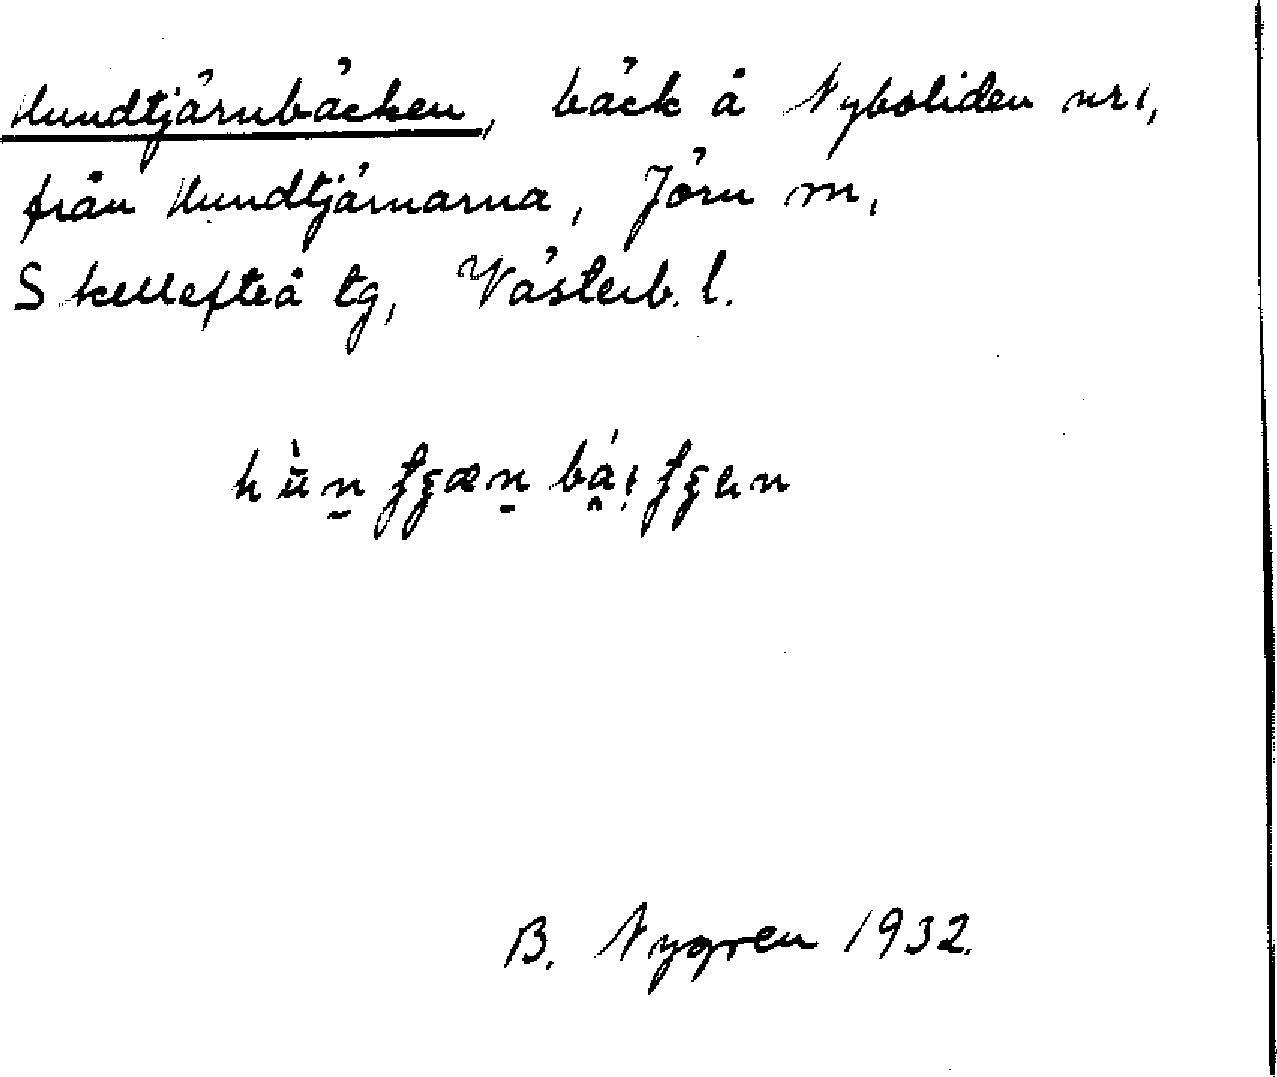 Hundtjärnbäcken, bäck å Nyboliden nr 1,
från Hundtjärnarna, Jörn sn,
Skellefteå tg, Västerb. l.
B. Nygren 1932.